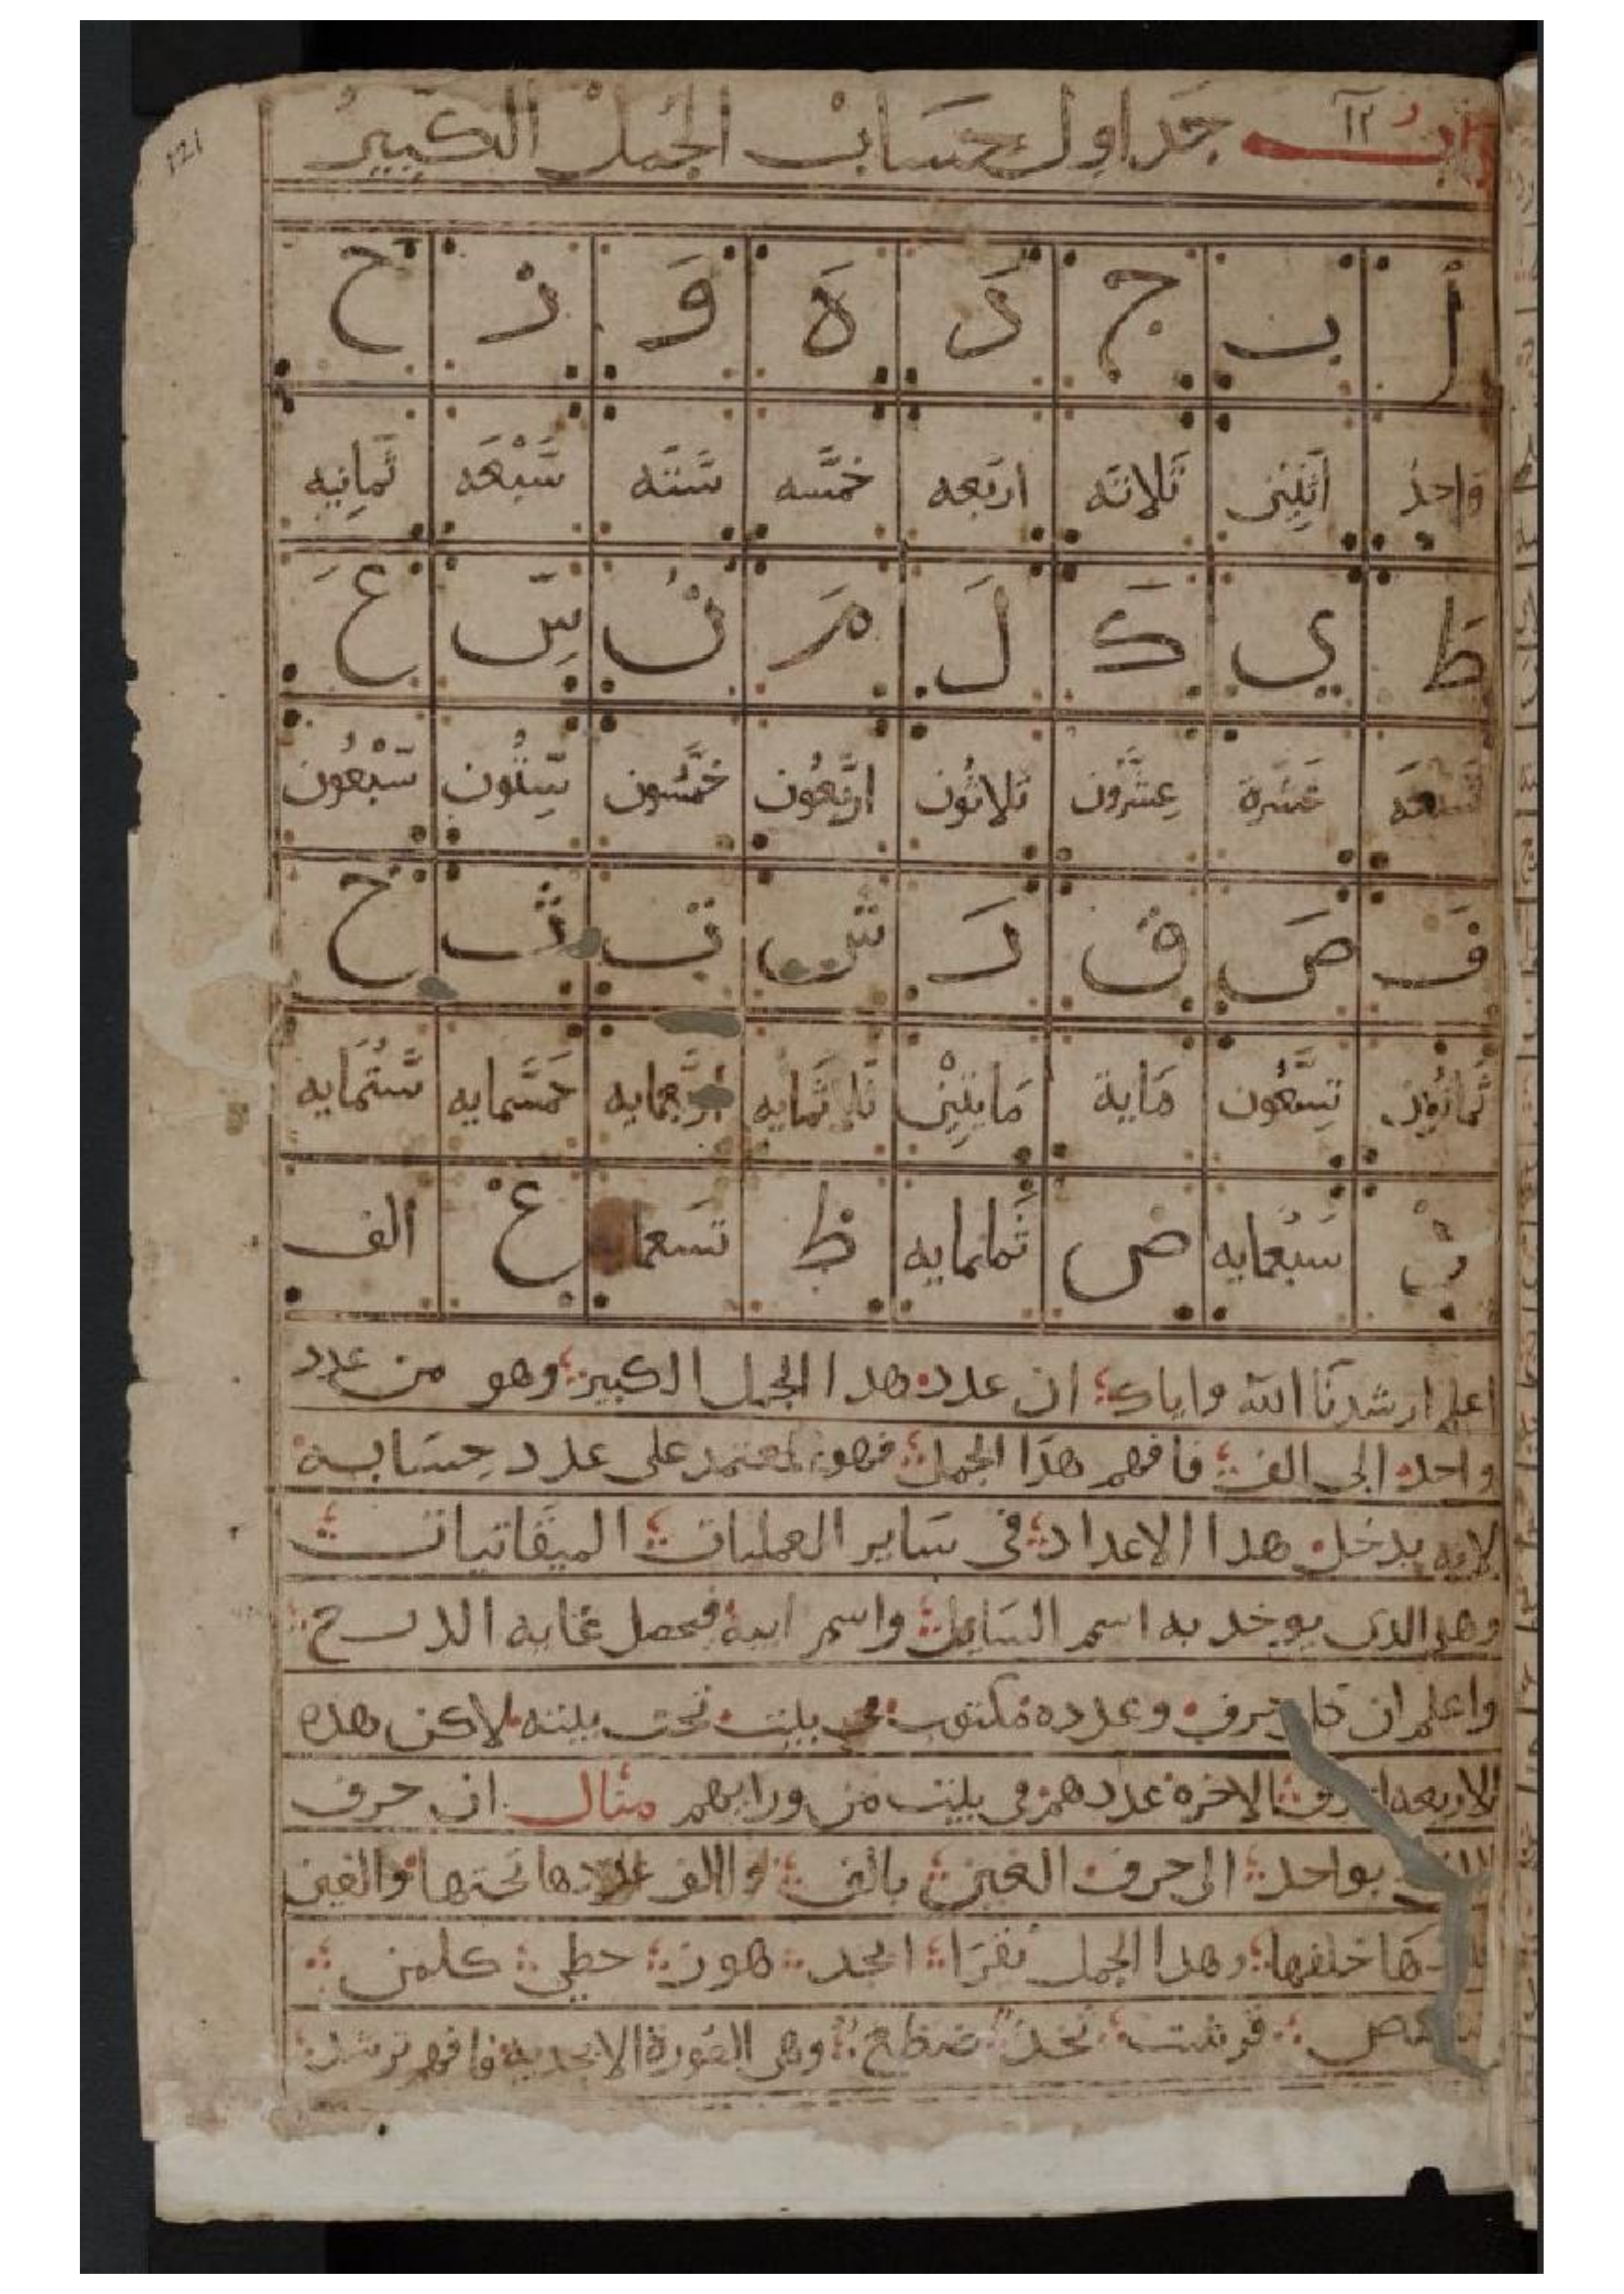 باب ١٢ جداول حساب الجُمل الكَبِيرُ
أ ب ج دَ هَ وَ زَ ح
واحد اثنين ثلاثه اربعه خمسه سته سَبْعَه ثمانِيه
ط ي كَ لَ مَ نُ سِ عَ
تسعه عَشرة عِشرُون ثلاثُون اربعُون خمسُون سِتُون سَبْعُون
فَ صَ ق رَ ش ت ث خ
ثمانُون تِسعُون مَاية مَايتين ثلاثمَايه اربعمايه خمسمايه ستمَايه
ذ سَبْعمايه ض ثَمانمايه ظ تسعما غ الف
اعلم ارشدنا الله واياك ان عدد هدا الجمل الكبير وهو من عدد
واحد الى الف فافهم هذا الجمل فهو المعتمد على عدد حِسَابه
لانه يدخل هدا الاعداد فى سَاير العمليات الميقاتيات
وهو الدى يوخد به اسم السَايل واسم ابيه فحصل غايه
واعلم ان كل حرف وعدده مكتوب فى بيت تحت بيته لاكن هده
الاربعه احرف الاخره عددهم فى بيت من ورايهم مثال ان حرف
الف بواحد الى حرف الغين بالف والالف عددها تحتها والغين
عددها خلفها وهدا الجمل تقرَا ابجد هوز حطي كلمن
سعفص قرشت ثخذ ضظغ وهى الصُورة الابجديه فافهم ترشد